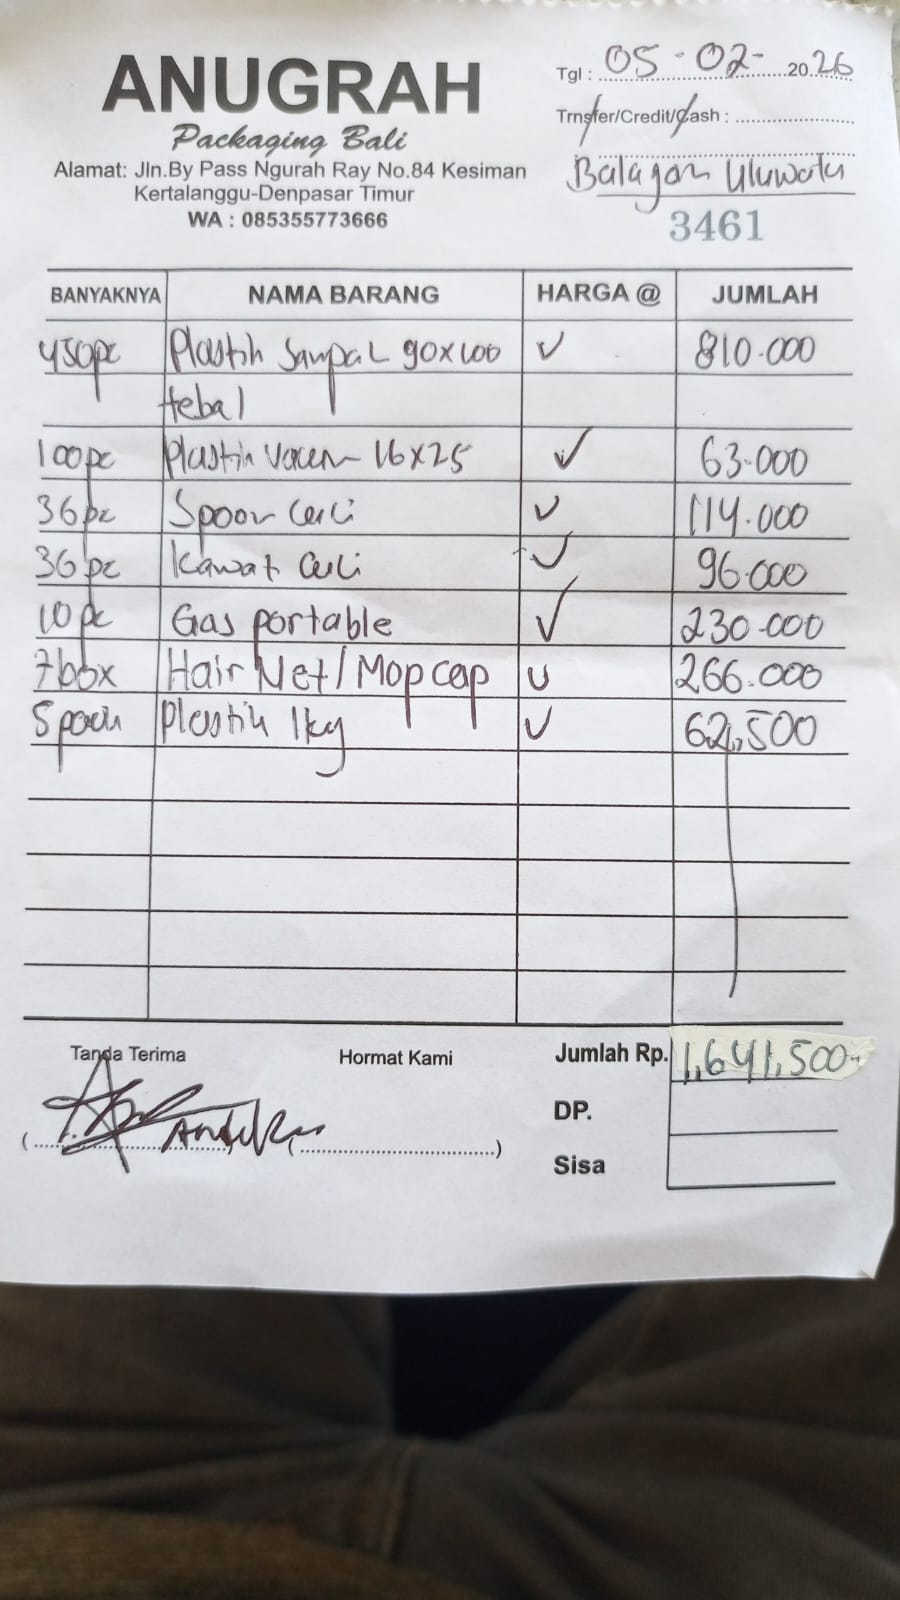 ANUGRAH
Packaging Bali
Alamat: Jln.By Pass Ngurah Ray No.84 Kesiman
Kertalanggu-Denpasar Timur
WA : 085355773666
Tgl : 05-02-2026
Trnsfer/Credit/Cash :
Balagan Uluwatu
3461
BANYAKNYA NAMA BARANG HARGA @ JUMLAH
450pc Plastik Sampah 90x100 ✓ 810.000
tebal
100pc Plastik Vacum 16x25 ✓ 63.000
36pc Spoon Cuci ✓ 114.000
36pc Kawat Cuci ✓ 96.000
10pc Gas portable ✓ 230.000
7box Hair Net/Mop cap ✓ 266.000
5pack Plastik 1kg ✓ 62,500
Tanda Terima Hormat Kami Jumlah Rp. 1,641,500-
DP.
Sisa